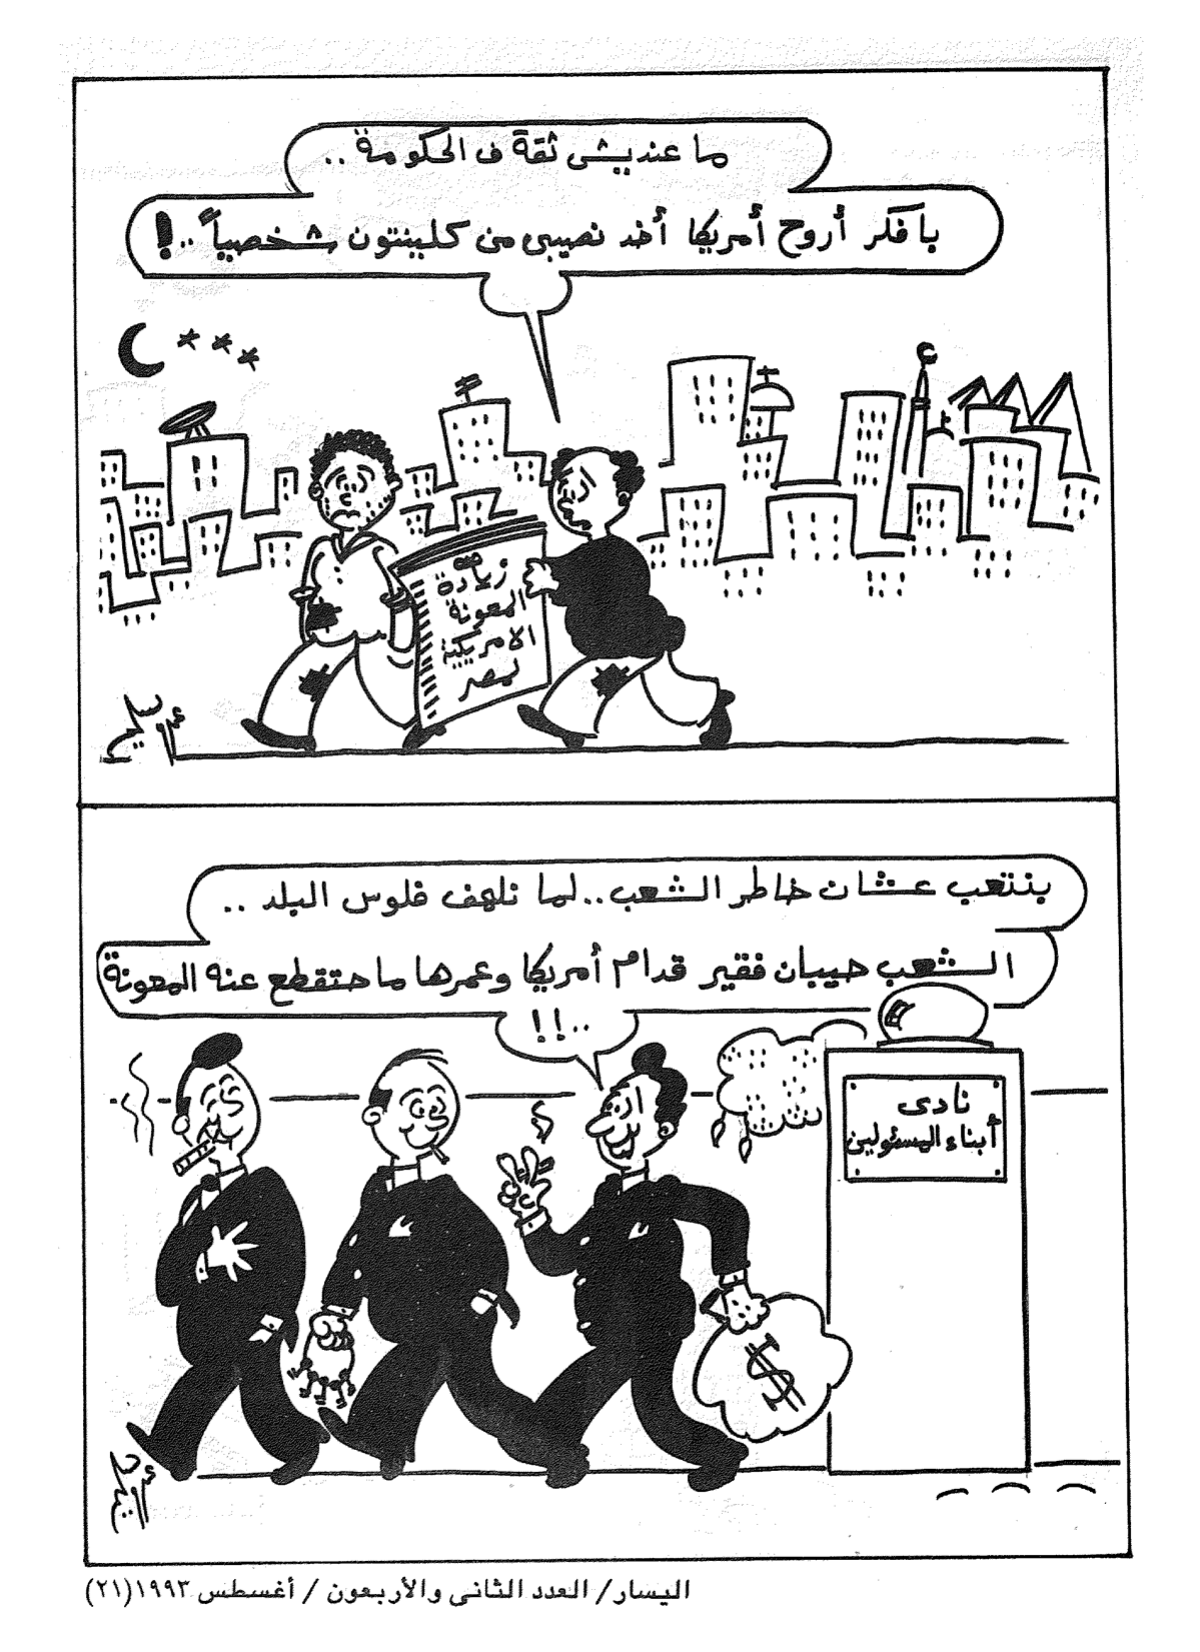 ما عنديش ثقة ف الحكومة ..
بافكر أروح أمريكا أخد نصيبى من كلينتون شخصياً ..!
زيادة
المعونة
الامريكية
لمصر
بنتعب عشان خاطر الشعب .. لما نلهف فلوس البلد ..
الشعب حيبان فقير قدام أمريكا وعمرها ماحتقطع عنه المعونة
..!!
نادى
أبناء المسئولين
$
اليسار/ العدد الثانى والأربعون / أغسطس ١٩٩٣(٢١)